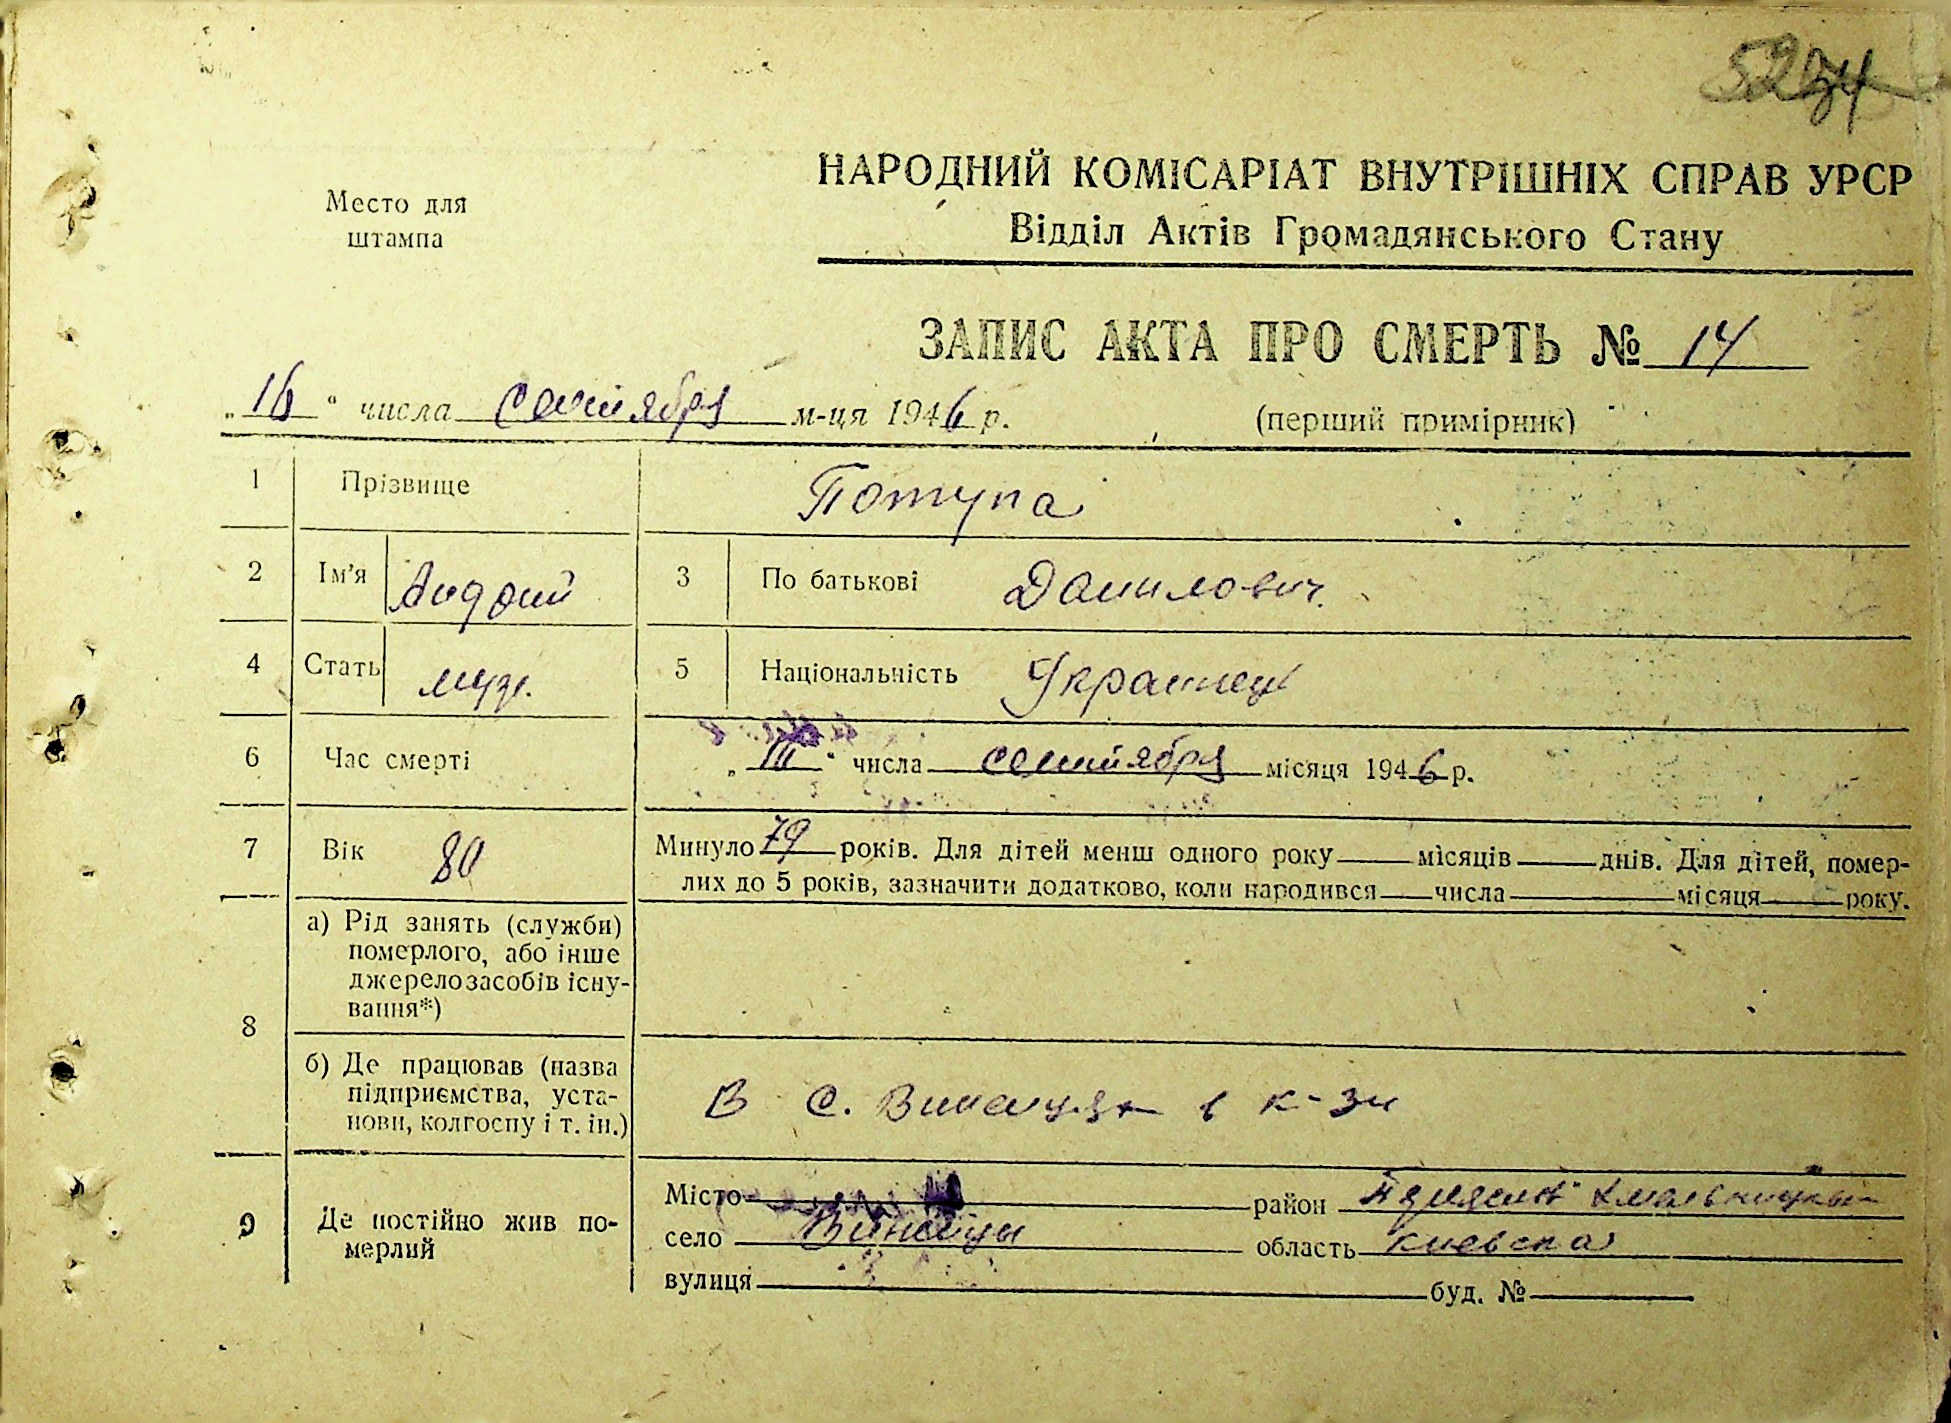 Место для
штампа
НАРОДНИЙ КОМІСАРІАТ ВНУТРІШНІХ СПРАВ УРСР
Відділ Актів Громадянського Стану
ЗАПИС АКТА ПРО СМЕРТЬ № 14
„16“ числа сентября м-ця 1946 р. (перший примірник)
1 Прізвище Потупа
2 Ім'я Андрий 3 По батькові Данилович.
4 Стать муж. 5 Національність Украинець
6 Час смерті числа сентября місяця 1946 р.
7 Вік 80 Минуло 79 років. Для дітей менш одного року місяців днів. Для дітей, помер-
лих до 5 років, зазначити додатково, коли народився числа місяця року.
8 а) Рід занять (служби)
померлого, або інше
джерело засобів існу-
вання*)
б) Де працював (назва
підприємства, уста-
нови, колгоспу і т. ін.) В с. в к-зи
9 Де постійно жив по-
мерлий
Місто район Хмельницкий
село Винницы область Киевска
вулиця буд. №